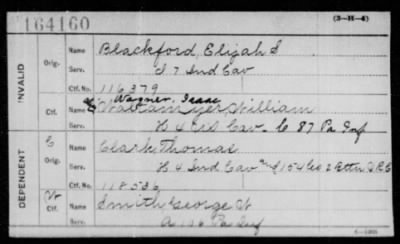 164160
(3-H-4)
INVALID
Orig.
Name Blackford, Elijah S
Serv. I 7 Ind Cav
Ctf. No. 116379
Wagner, Isaac
Ctf.
Name William
Serv. H 4 US Cav. C 87 Pa Inf
DEPENDENT
C
Orig.
Name Clark Thomas
Serv. H 4 Ind Cav and 154 Co 2 Battn
Ctf. No. 118536
Ctf.
Name Smith George W
Serv. A Pa Inf